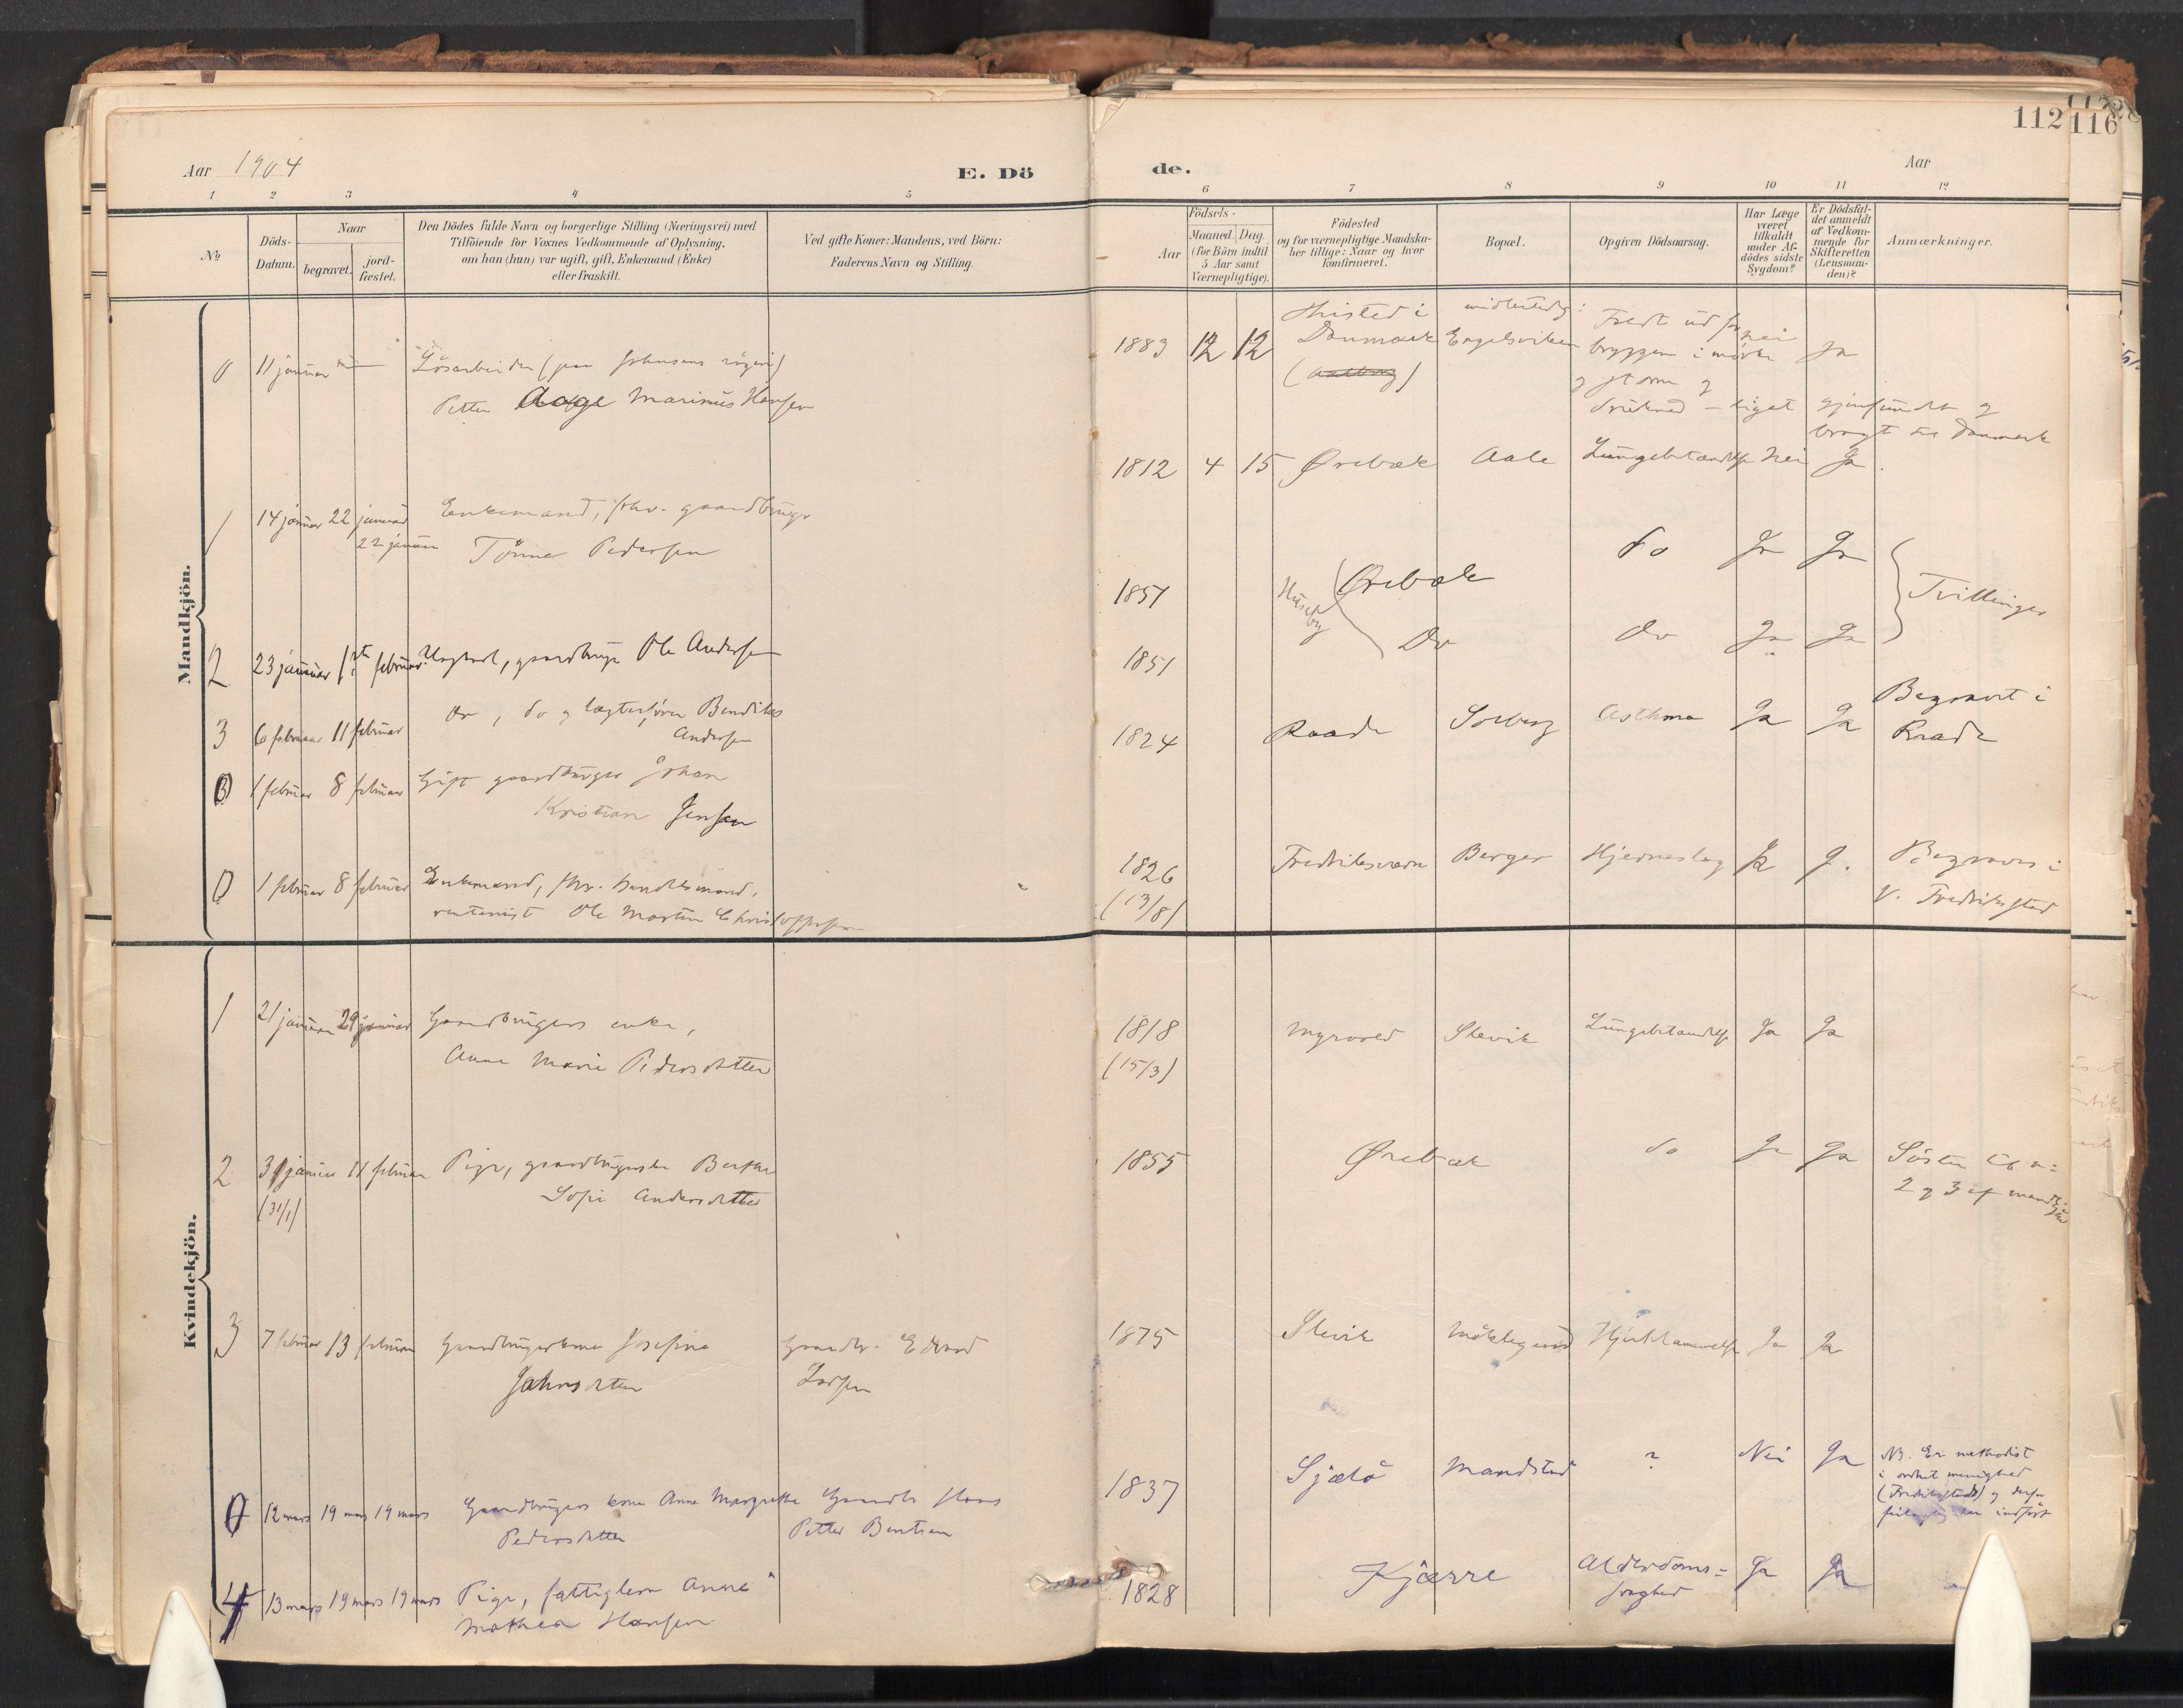 112
116
Aar 1904
E. Dö
de.
Aar
1 2 3 4 5 6 7 8 9 10 11 12
No
Döds-
Datum.
Naar
begravet.
jord-
fæstet.
Den Dödes fulde Navn og borgerlige Stilling (Næringsvei) med
Tilföiende for Voxnes Vedkommende af Oplysning,
om han (hun) var ugift, gift, Enkemand (Enke)
eller fraskilt.
Ved gifte Koner: Mandens, ved Börn:
Faderens Navn og Stilling.
Födsels-
Aar
Maaned. Dag.
(for Börn indtil
5 Aar samt
Værnepligtige).
Födested
og for værnepligtige Mandska-
ber tillige: Naar og hvor
konfirmeret.
Bopæl.
Opgiven Dödsaarsag.
Har Læge
været
tilkaldt
under Af-
dödes sidste
Sygdom?
Er Dödsfal-
det anmeldt
af Vedkom-
mende for
Skifteretten
(Lensman-
den)?
Anmærkninger.
Mandkjön.
0 11 januar
Lösarbeider (paa Johnsens
Petter Aage Marinus Hansen
1883 12 12
Thisted i
Danmark
Engelsviken
bryggen i mörke
og storm og
druknet - liget gjenfundet og
bragt til Danmark
nei
Ja
1 14 januar 22 januar
22 januar
Enkemand, fhv. gaardbruger
Tönne Pedersen
1812 4 15 Ørebæk Aale Lungebetændelse Nei Ja
2 23 januar 1ste februar Ungkarl, gaardbruger Ole Andersen
1851 Huseby Ørebæk do Ja Ja
Tvillinger
3 6 februar 11 februar do, do og lægterfører Bendiks
Andersen
1851 Do do Ja Ja
0 1 februar 8 februar Gift gaardbruger Johan
Kristian Jensen
1824 Raade Solberg Asthma Ja Ja Begravet i
Raade
0 1 februar 8 februar Enkemand, fhv. handelsmand,
rentenist Ole Martin Christoffersen
1826
(13/8)
Fredriksværn Berger Hjerneslag Ja J. Begraves i
V. Fredriksstad
Kvindekjön.
1 21 januar 29 januar Gaardbrugers enke,
Anne Marie Pedersdatter
1818
(15/3)
Myrvold Slevik Lungebetændelse Ja Ja
2 31 januar 11 februar Pige, gaardbrugerske Berthe
(31/1)
Sofie Andersdatter
1855 Ørebæk do Ja Ja Söster til no
2 og 3 af mandkjön
3 7 februar 13 februar Gaardbrugerkone Josefine
Johnsdatter
Gaardbr. Edvard
Larsen
1875 Slevik Hjertelammelse Ja Ja
0 12 mars 19 mars 19 mars Gaardbrugers kone Anne Margrethe
Pedersdatter
Gaardbr Hans
Petter Bentsen
1837 Sjælö Mandstad ? Nei Ja NB. Er methodist
i ordnet menighed
(Fredriksstads) og derfor
feilagtig her indført
4 13 mars 19 mars 19 mars Pige, fattiglem Anne
Mathea Hansen
1828 Kjærre Alderdoms-
svaghed
Ja Ja